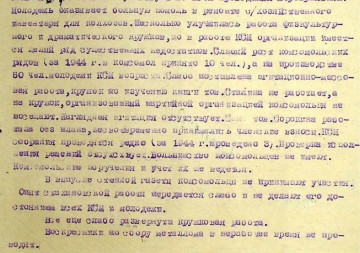 молодежь оказывает большую помощь в ремонте с/хозяйственного
инвентаря для колхозов. Несколько улучшилась работа физкультур-
ного и драматического кружков, но в работе КСМ организации имеет-
ся целый ряд существенных недостатков. Слабый рост комсомольских
рядов (за 1944 г. в комсомол принято 10 чел.), а на производстве
80 чел. молодежи КСМ возраста. Слабо поставлена агитационно-массо-
вая работа, кружок по изучению книги тов. Сталина не работает, а
на кружок, организованный партийной организацией комсомольцы не
посещают. Наглядная агитация отсутствует. тов. Борошня рабо-
тала без плана, несвоевременно членские взносы. КСМ
собрания проводятся редко (за 1944 г. проведено 3). Проверка испол-
нения решений отсутствует. Большинство комсомольцев не имеют
комсомольских поручений и учет их не ведется.
В выпуске стенной газеты комсомольцы не принимают участия.
Опыт стахановской работы передается слабо и не делают его до-
стоянием всех КСМ и молодежи.
Все еще слабо развернута кружковая работа.
Воскресники по сбору металлома в нерабочее время не про-
водят.